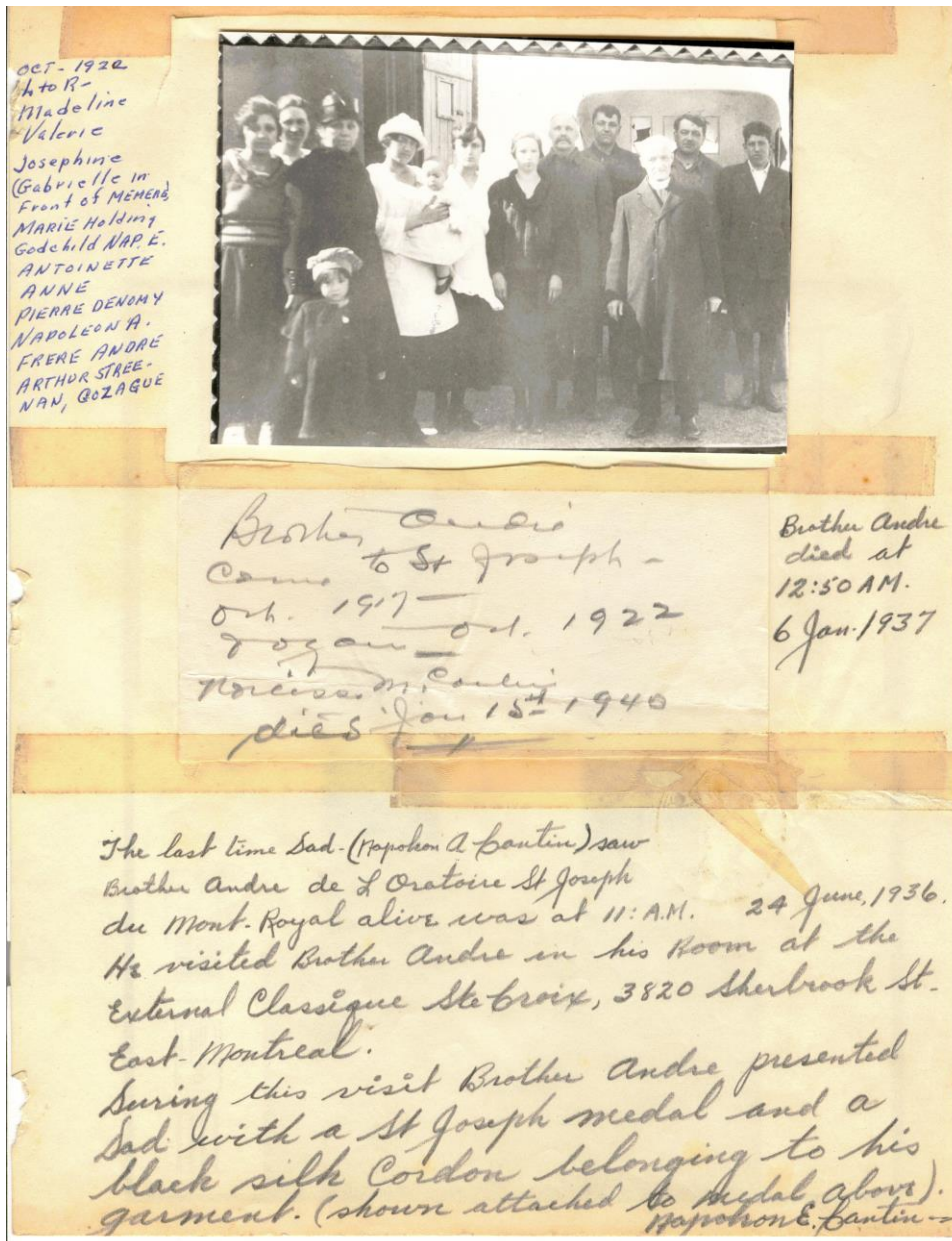 OCT - 1922
L to R -
Madeline
Valerie
Josephine
(Gabrielle in
Front of MEMERE)
MARIE Holding
Godchild NAP. E.
ANTOINETTE
ANNE
PIERRE DENOMY
NAPOLEON A.
FRERE ANDRE
ARTHUR STREE-
NAN, GOZAGUE
Brother Andre
Came to St Joseph -
Oct. 1917 -
Oct. 1922
Narcisse M. Cantin
died Jan 15th 1940
Brother Andre
died at
12:50 AM.
6 Jan. 1937
The last time Dad - (Napoleon A Cantin) saw
Brother Andre de L Oratoire St Joseph
du Mont-Royal alive was at 11: A.M. 24 June, 1936.
He visited Brother Andre in his Room at the
External Classique Ste Croix, 3820 Sherbrook St.
East - Montreal.
During this visit Brother Andre presented
Dad with a St Joseph medal and a
black silk Cordon belonging to his
garment. (shown attached to medal above).
Napoleon E. Cantin -